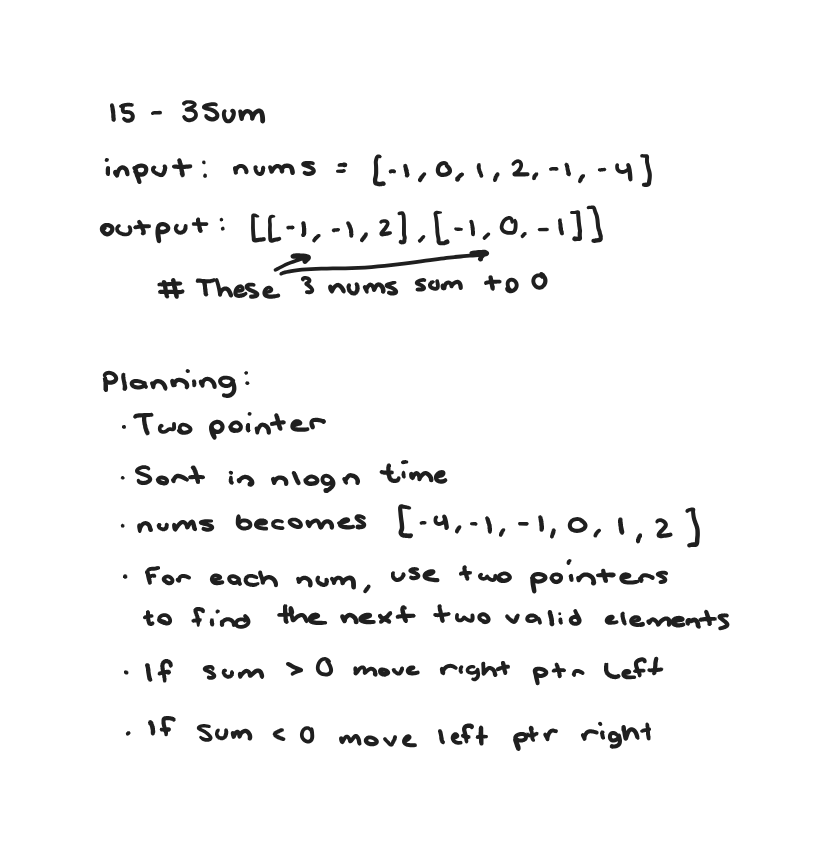 15 - 3Sum
input: nums = [-1, 0, 1, 2, -1, -4]
output: [[-1, -1, 2], [-1, 0, -1]]
# These 3 nums sum to 0
Planning:
· Two pointer
· Sort in nlogn time
· nums becomes [-4, -1, -1, 0, 1, 2]
· For each num, use two pointers
to find the next two valid elements
· If sum > 0 move right ptr left
· If sum < 0 move left ptr right